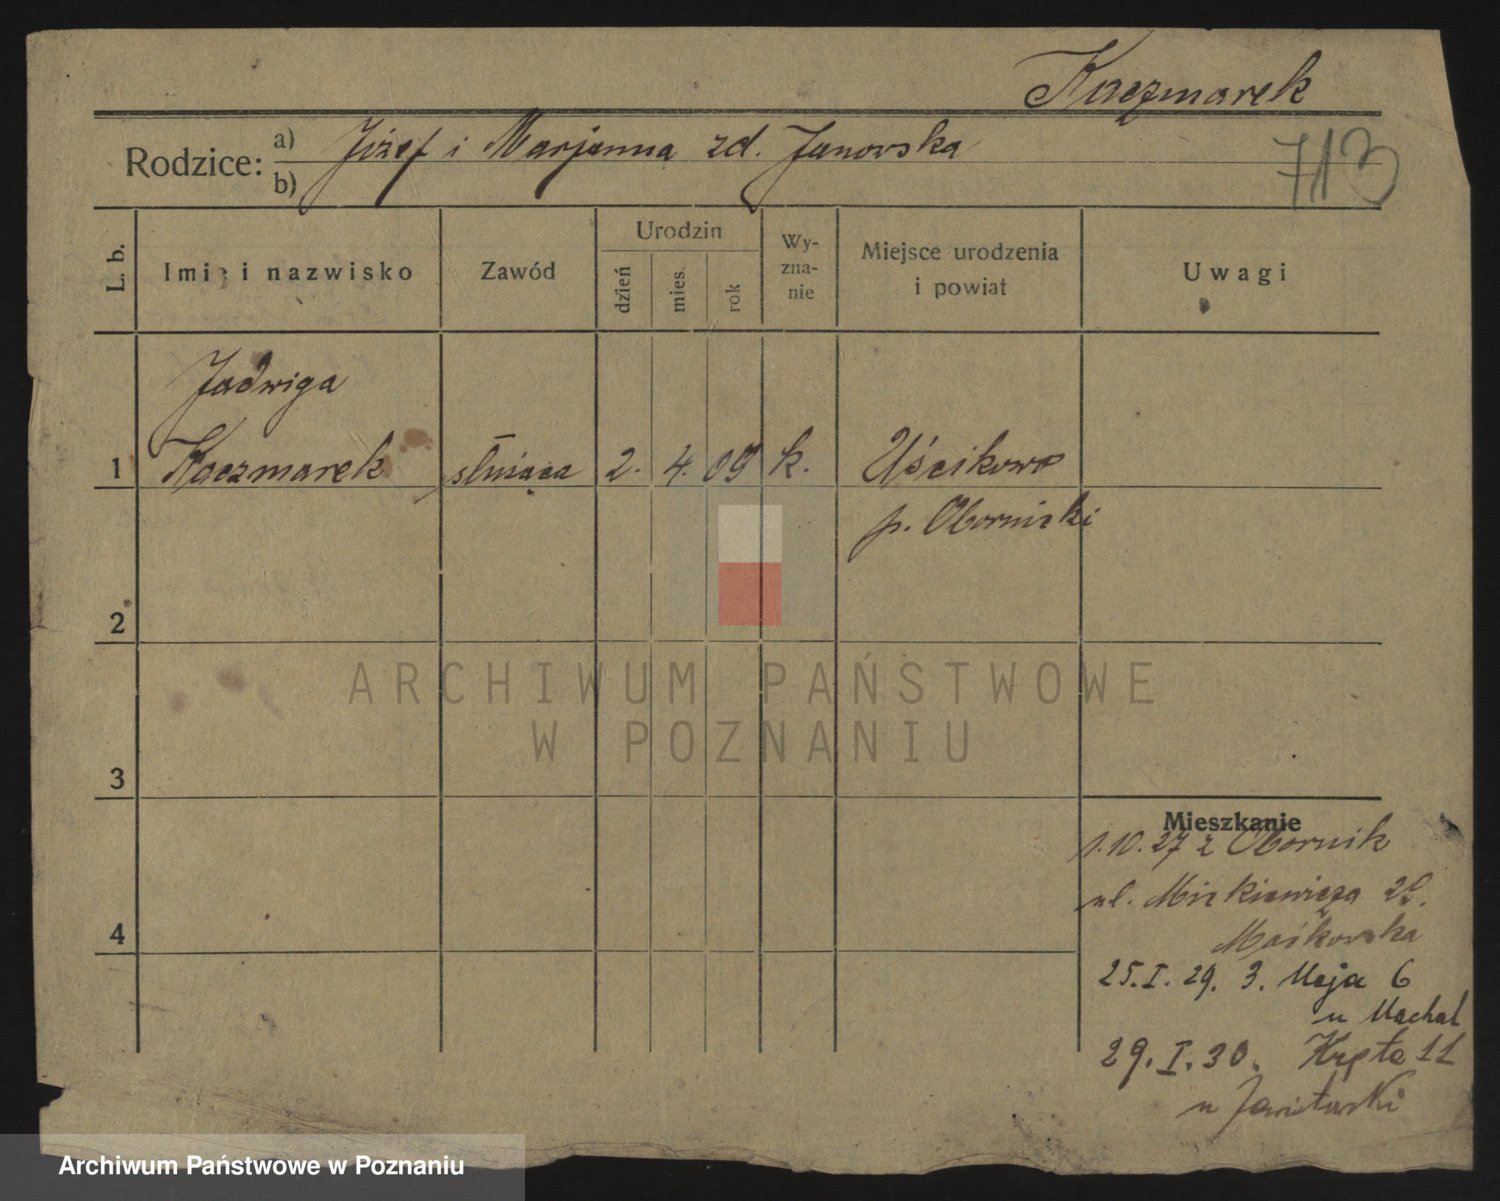 Kaczmarek
Rodzice: a) Józef i Marjanna zd. Janowska
b)
713
L. b.
Imię i nazwisko
Zawód
Urodzin
dzień
mies.
rok
Wy-
zna-
nie
Miejsce urodzenia
i powiat
Uwagi
Jadwiga
1 Kaczmarek służąca 2. 4. 09 k. Uścikowo
p. Obornicki
2
3
4
Mieszkanie
1.10.27 z Obornik
ul. Mickiewicza 28.
Maćkowska
25.I.29. 3. Maja 6
u Machal
29.I.30. Kręta 11
u
ARCHIWUM PAŃSTWOWE
W POZNANIU
Archiwum Państwowe w Poznaniu